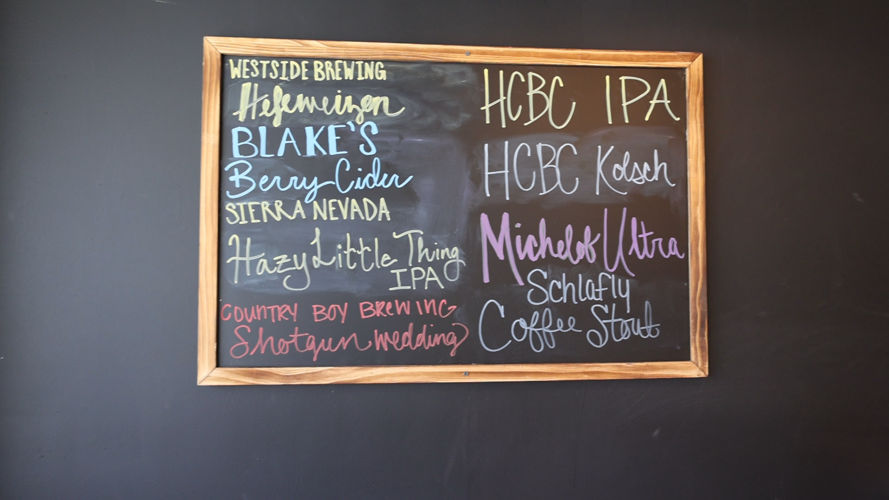 WESTSIDE BREWING
Hefeweizen
BLAKE'S
Berry Cider
SIERRA NEVADA
Hazy Little Thing
IPA
COUNTRY BOY BREWING
Shotgun wedding
HCBC IPA
HCBC Kolsch
Michelob Ultra
Schlafly
Coffee Stout